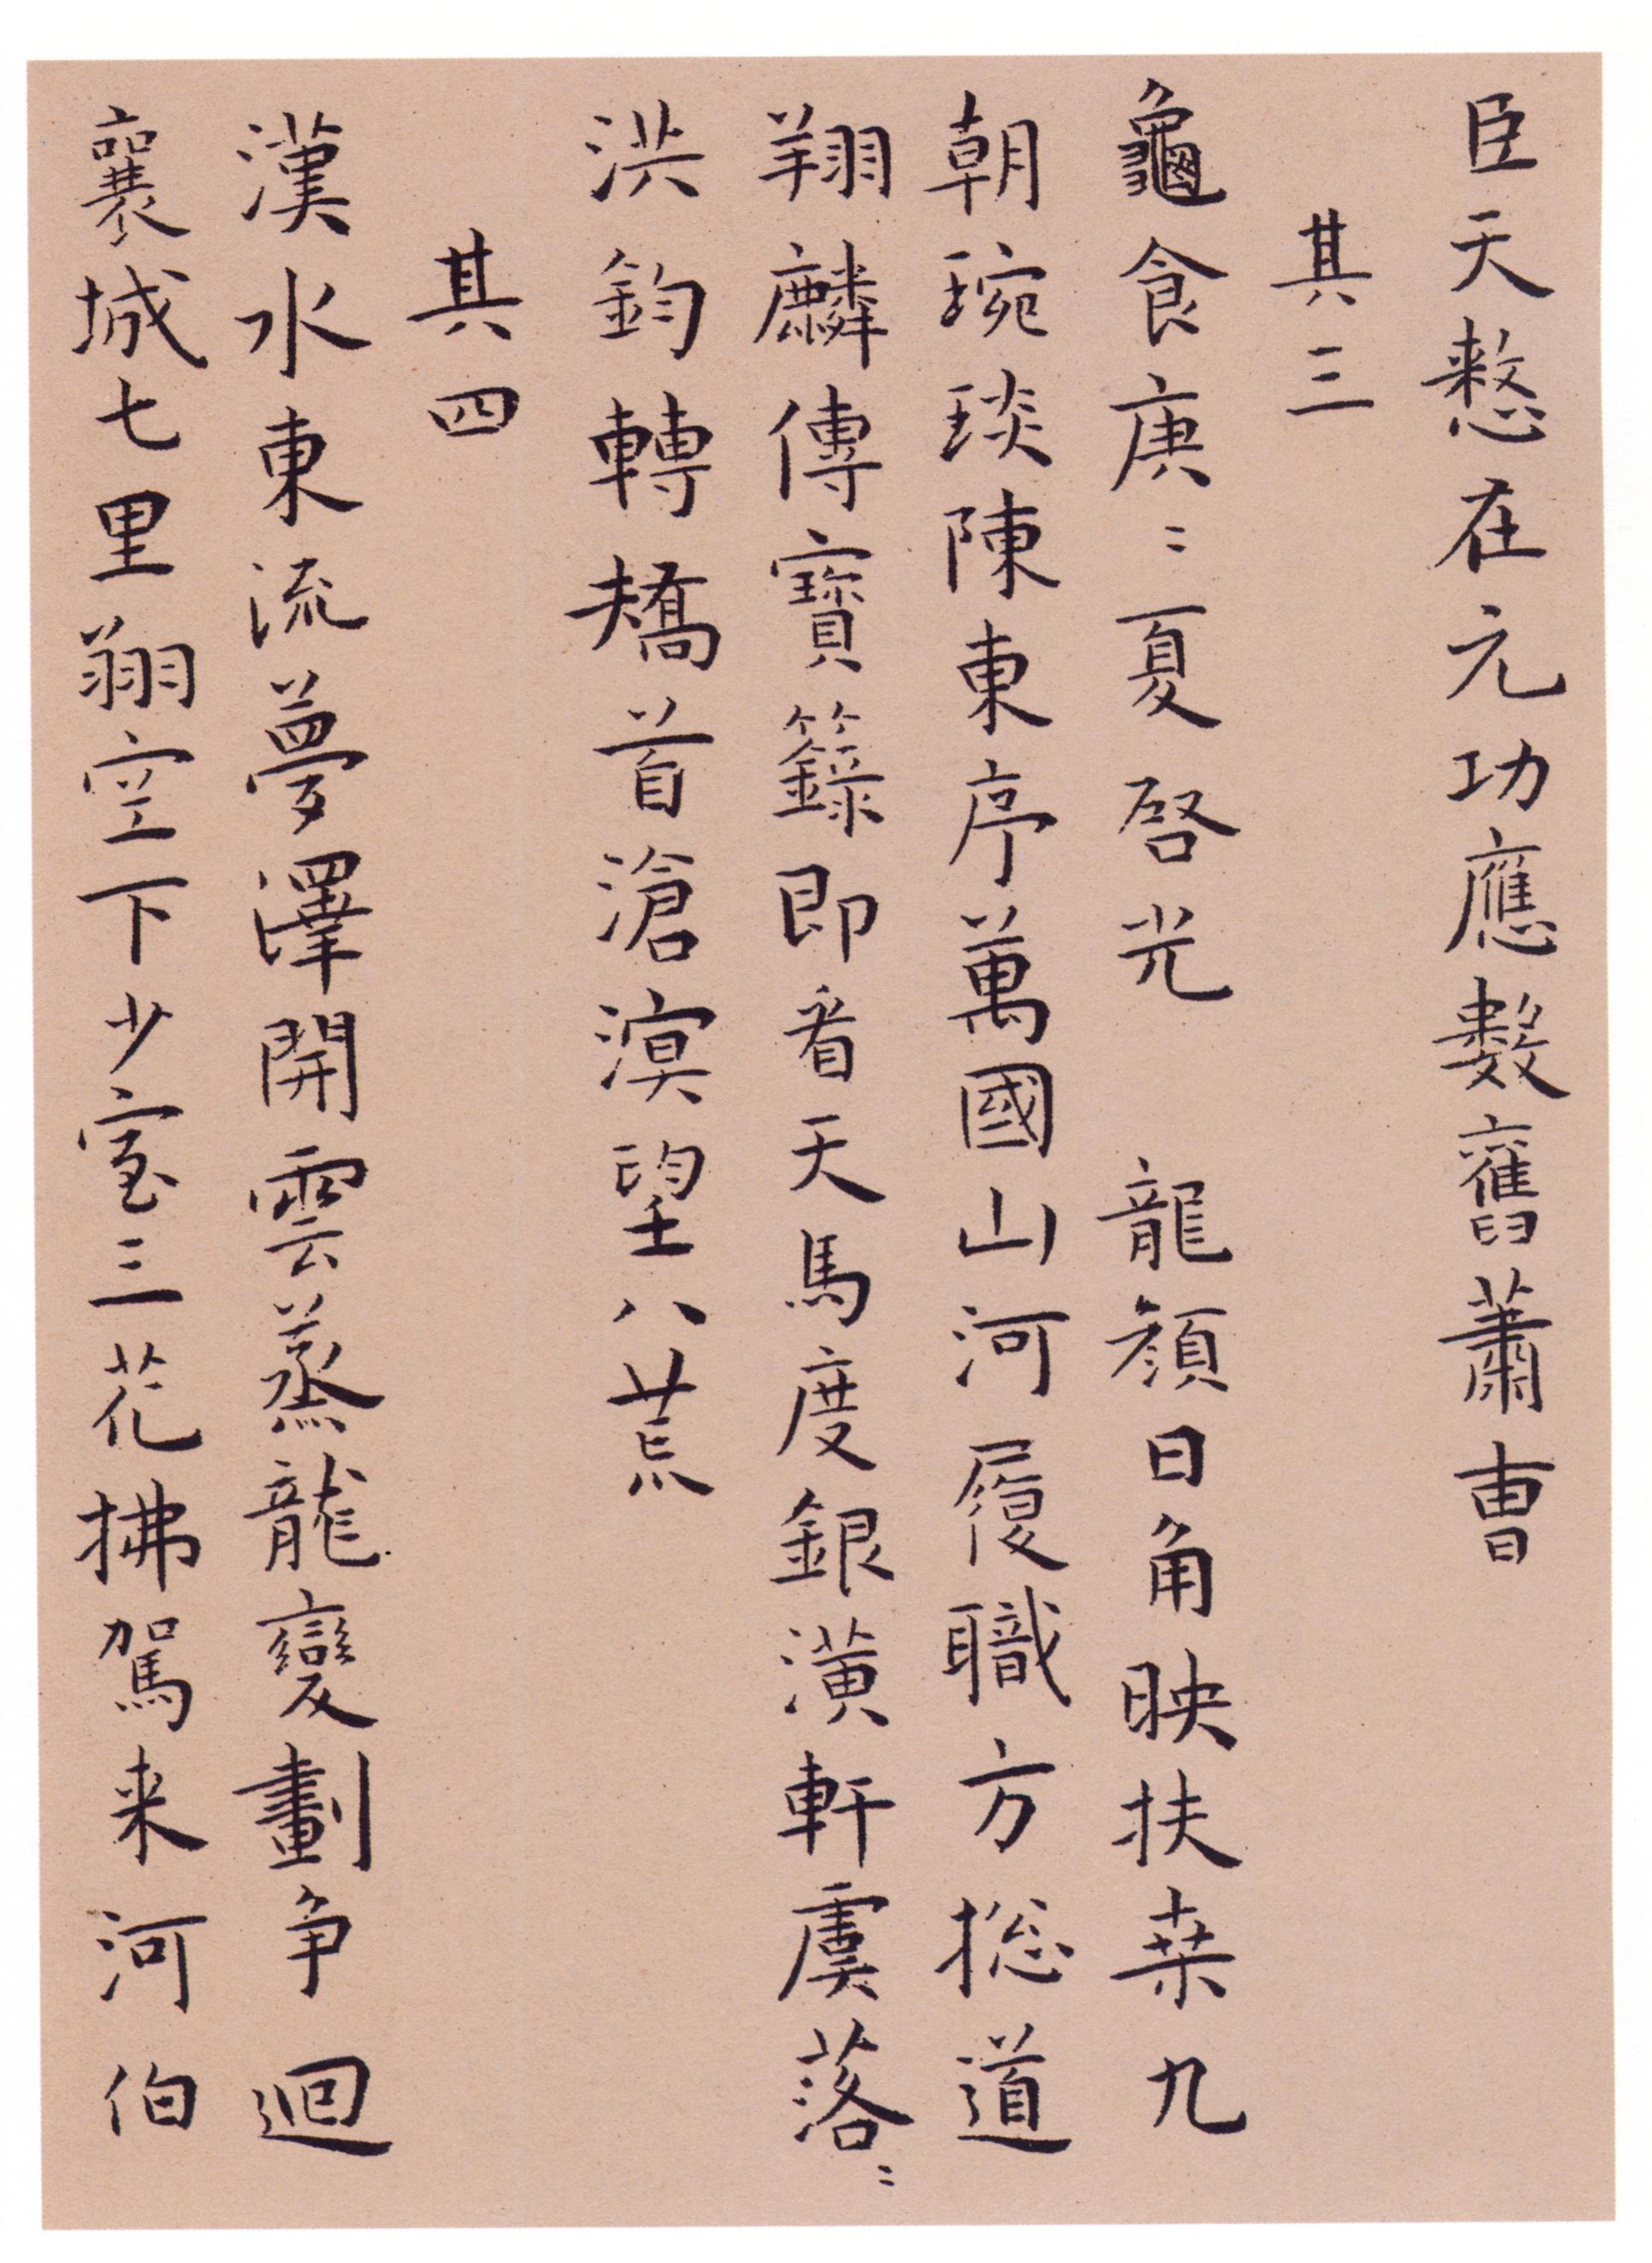 臣天憖在元功應數舊蕭曹
其三
龜食庚〻夏啓光 龍顏日角映扶桒九
朝琬琰陳東序萬國山河履職方捴道
翔麟傳寶籙即看天馬度銀潢軒虞落〻
洪鈞轉矯首滄溟望八荒
其四
漢水東流夢澤開雲蒸龍變劃争迴
襄城七里翔空下少室三花拂駕来河伯